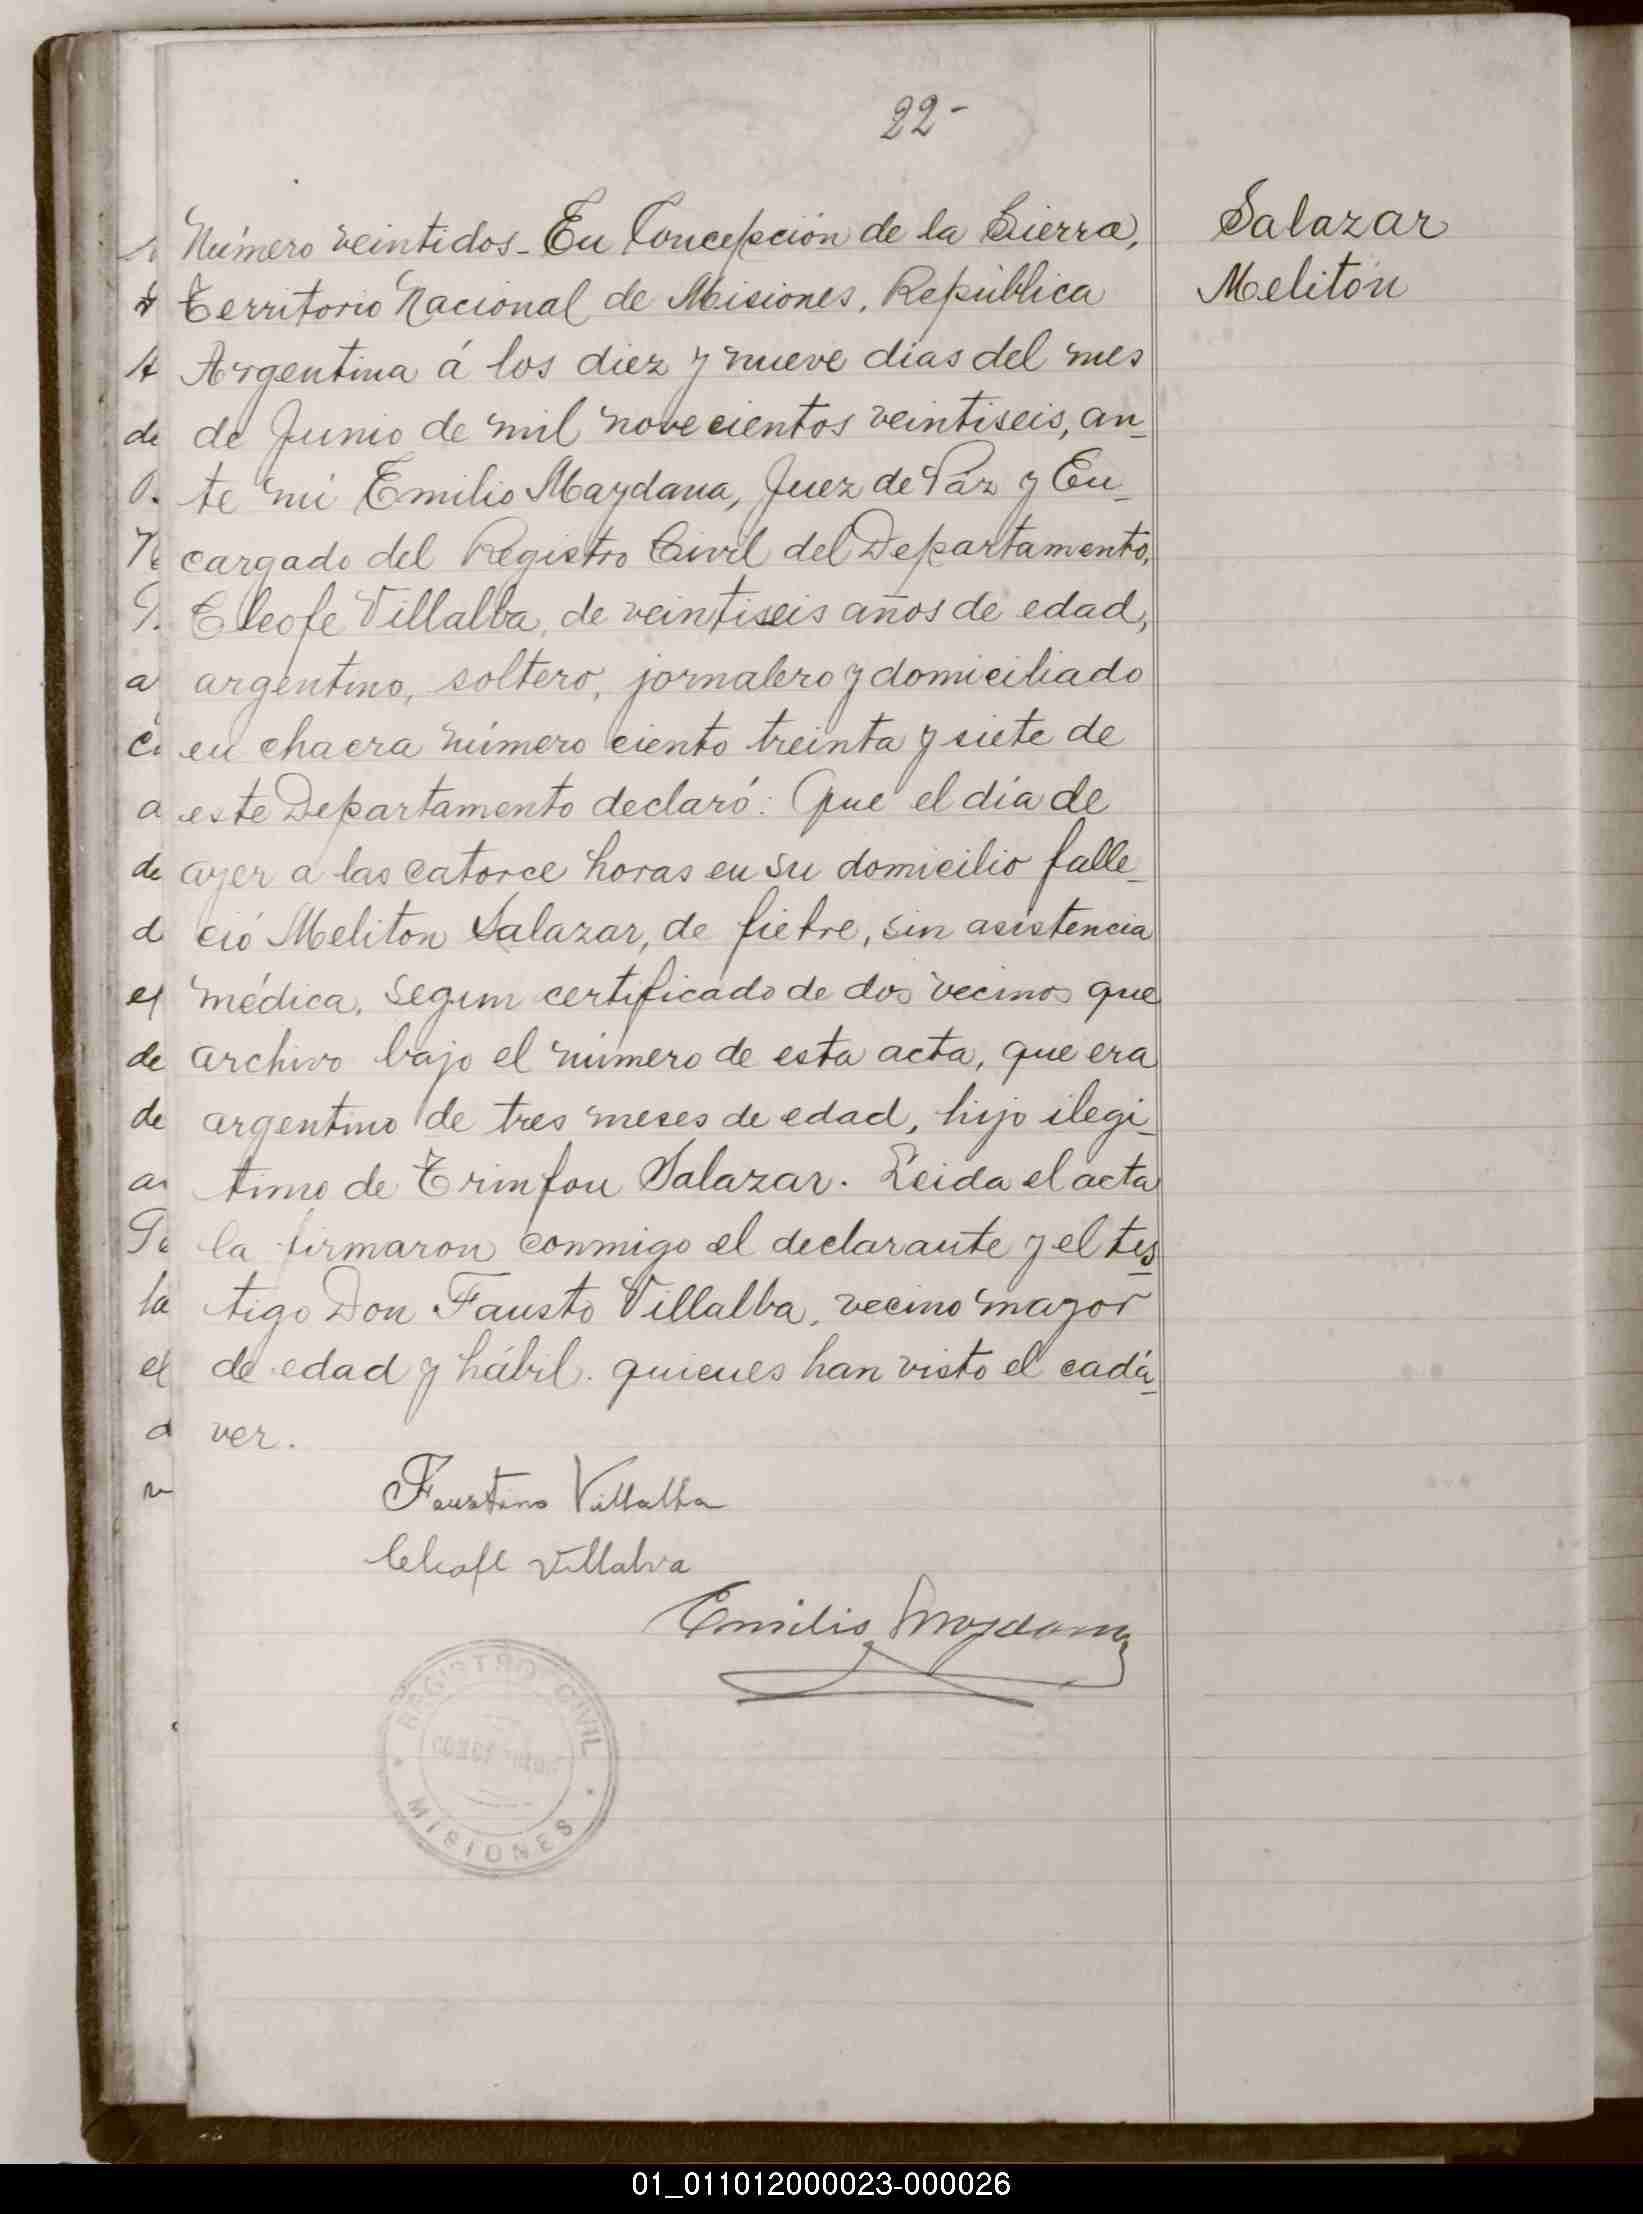 22-
Salazar
Meliton
Número veintidos- En Concepción de la Sierra,
Territorio Nacional de Misiones, República
Argentina á los diez y nueve dias del mes
de Junio de mil novecientos veintiseis, an-
te mi Emilio Maydana, Juez de Paz y En-
cargado del Registro Civil del Departamento,
Cleofe Villalba, de veintiseis años de edad,
argentino, soltero, jornalero y domiciliado
en chacra número ciento treinta y siete de
este Departamento declaró: Que el día de
ayer a las catorce horas en su domicilio falle-
ció Meliton Salazar, de fiebre, sin asistencia
médica, segun certificado de dos vecinos que
archivo bajo el número de esta acta, que era
argentino de tres meses de edad, hijo ilegi-
timo de Trinfon Salazar. Leida el acta
la firmaron conmigo el declarante y el tes-
tigo Don Fausto Villalba, vecino mayor
de edad y hábil. quienes han visto el cadá-
ver.
Faustino Villalba
Cleofe Villalva
Emilio Maydana
REGISTRO CIVIL
MISIONES
01_011012000023-000026